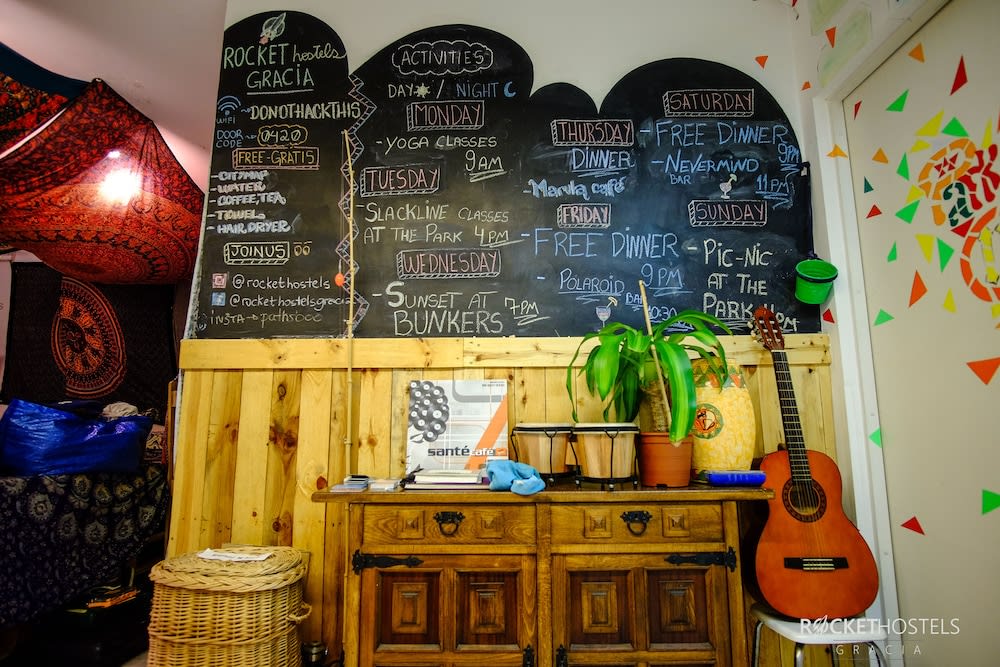 ROCKET hostels
GRACIA
WIFI
DONOTHACKTHIS
DOOR CODE
0420
FREE-GRATIS
- CITYMAP
- WATER
- COFFEE, TEA
- TOWEL
- HAIR DRYER
JOIN US
@rockethostels
@rockethostelsgracia
INSTA→ pathsbcc
ACTIVITIES
DAY / NIGHT
MONDAY
- YOGA CLASSES
9AM
TUESDAY
- SLACKLINE CLASSES
AT THE PARK 4PM
WEDNESDAY
- SUNSET AT 7PM
BUNKERS
THURSDAY
DINNER
Marula café
FRIDAY
- FREE DINNER
9PM
- POLAROID
BAR
SATURDAY
- FREE DINNER
9PM
- NEVERMIND
BAR
11PM
SUNDAY
- PIC-NIC
AT THE
PARK
santé café
ROCKETHOSTELS
GRACIA